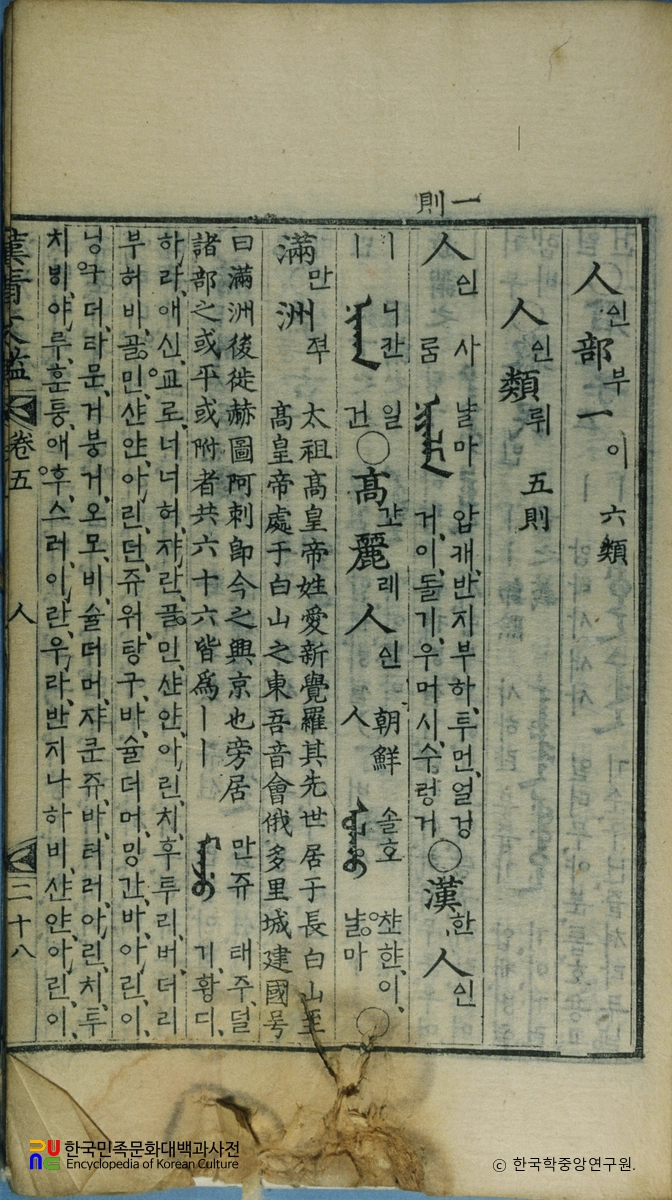 一則
人인部부一이 六類
人인類뤼 五則
人인 사람 ᠨᡳᠶᠠᠯᠮᠠ 냘마 압캐,반지부하,투먼,얼겅
거,이,둘기,우머시,수렁거 ○漢한人인
丨丨 ᠨᡳᡴᠠᠨ 니칸 일건 ○高麗레人인 朝鮮人 ᠰᠣᠯᡥᠣ 솔호냘마 ○
滿만洲쥬 太祖高皇帝姓愛新覺羅其先世居于長白山至
高皇帝處于白山之東吾音會俄多里城建國号
曰滿洲後徙赫圖阿剌卽今之興京也旁居
諸部之或平或附者共六十六皆爲丨丨 ᠮᠠᠨᠵᡠ 만쥬 태주,덜
기,황디,
하라,애신,교로,너너허,쟈란,골민,샨얀,아린,치,후투리,버더리
부허비,골민,샨얀,아린,던,쥬워,탕구,바,슐더머,밍간,바,아린,이,
닝구더,라문,거붕거,오모,비,슐더머,쟈쿤쥬,바,터러,아린,치,투
치빙,야루,훈퉁,애후,스러,이란,우라,반지나하비,샨얀,아린,이,
漢淸文鑑 卷五 人 二十八
한국민족문화대백과사전
Encyclopedia of Korean Culture
ⓒ 한국학중앙연구원.